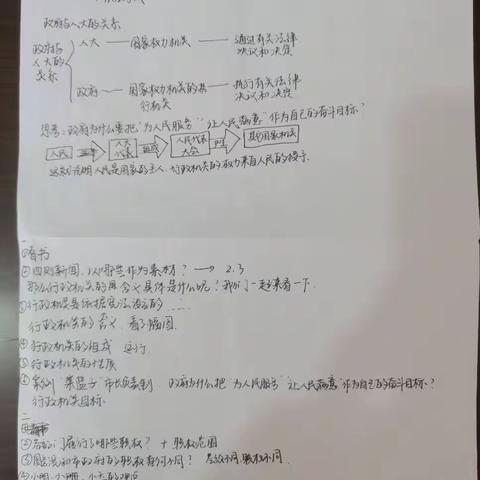 政府与人大的关系
政府与人大的关系
人大 —— 国家权力机关 —— 通过有关法律
决议和决定
政府 —— 国家权力机关的执行机关 —— 执行有关法律
决议和决定
思考：政府为什么要把"为人民服务""让人民满意"作为自己的奋斗目标？
人民 选举 人大代表 组成 人民代表大会 产生 其它国家机关
这就说明人民是国家的主人，行政机关的权力来自人民的授予。
一
①看书
②四则新闻，以哪些作为素材？ → 2.3
那么行政机关的含义具体是什么呢？我们一起来看一下.
③行政机关是依据宪法设立的……
行政机关的含义 看3幅图.
④行政机关的组成 运行.
⑤行政机关的性质
⑥案例"菜篮子"市长负责制. 政府为什么把"为人民服务""让人民满意"作为自己的奋斗目标？
行政机关目标.
二
②各部门履行了哪些职权？ + 职权范围
③国务院和市政府的职权有何不同？ 层级不同,职权不同.